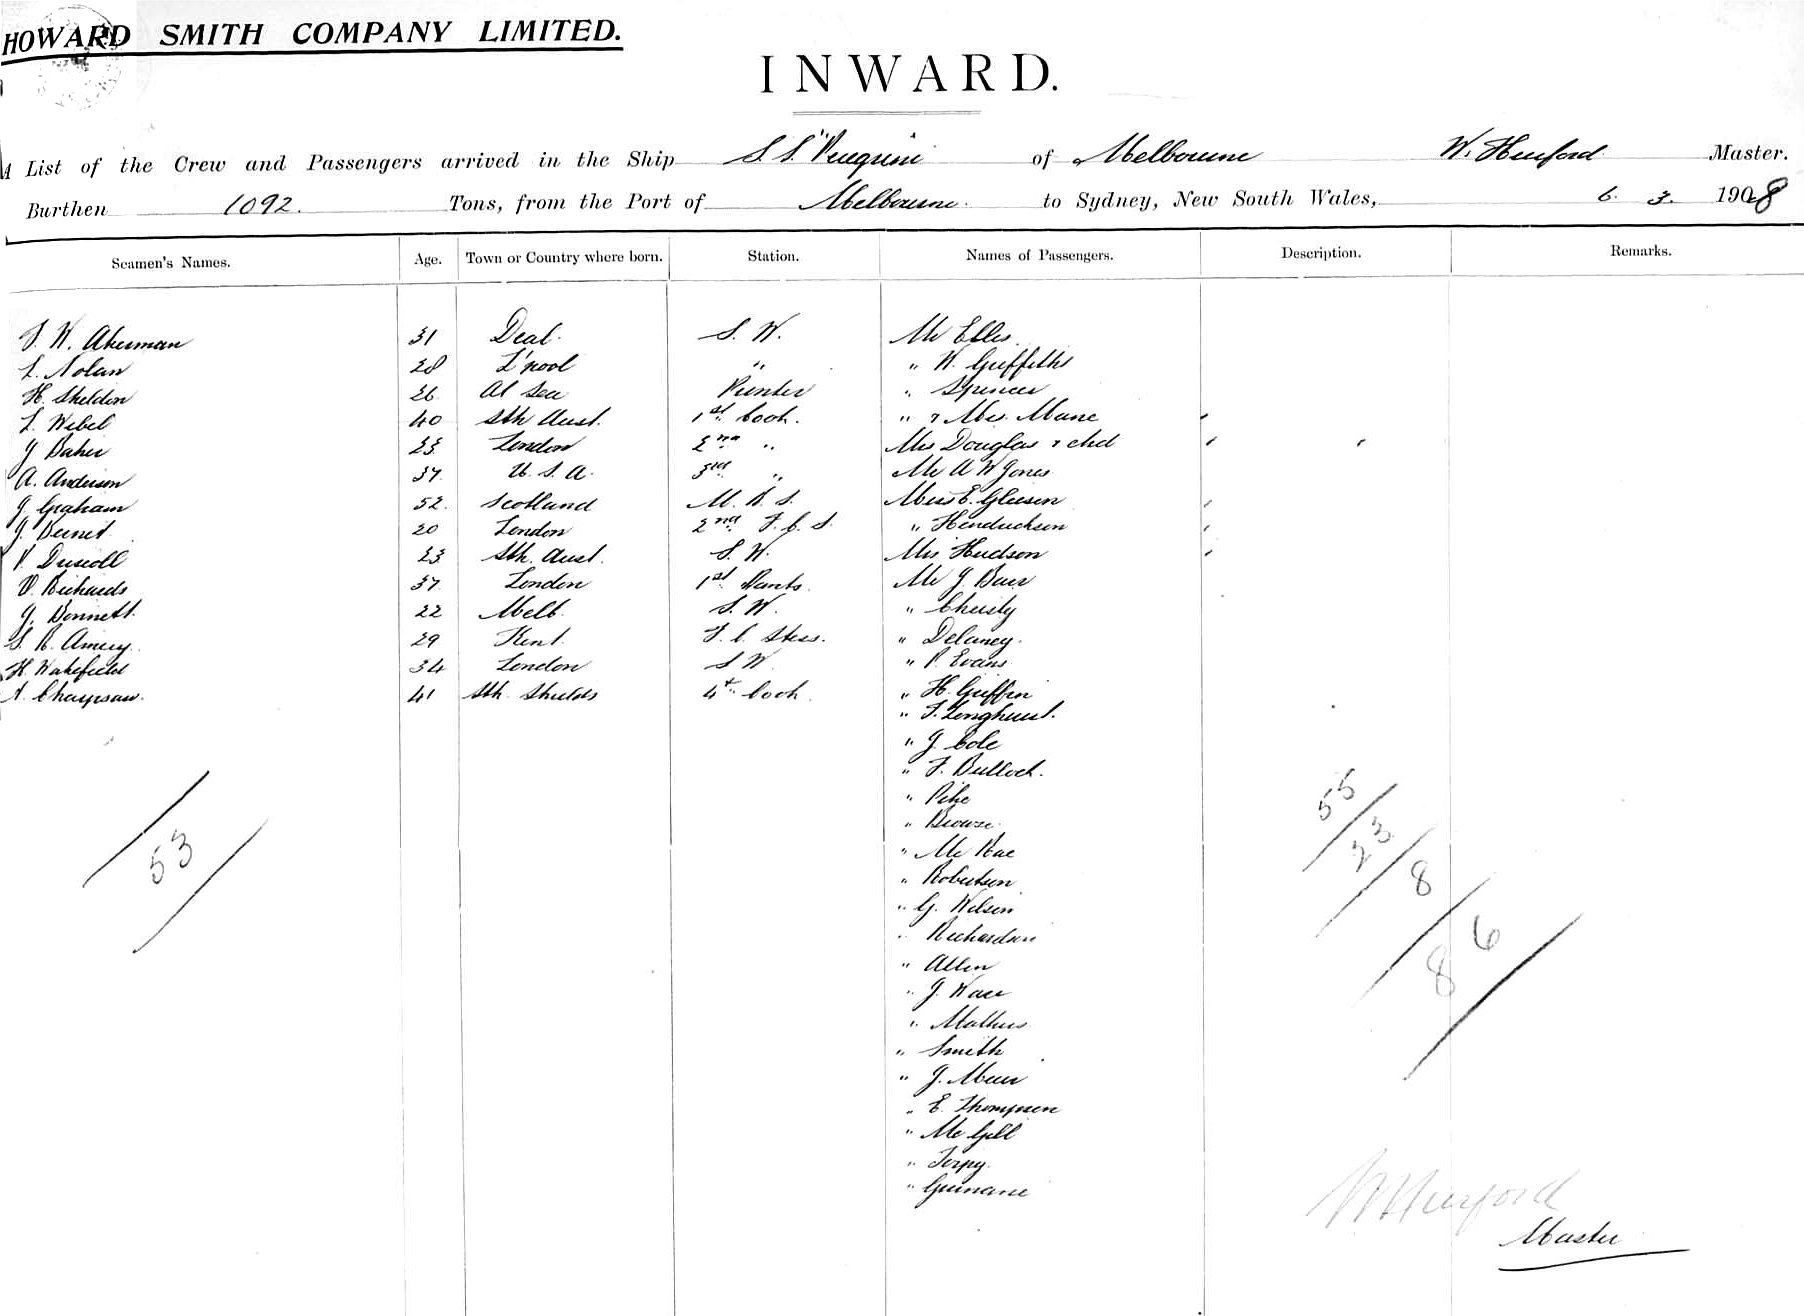 HOWARD SMITH COMPANY LIMITED.
INWARD.
A List of the Crew and Passengers arrived in the Ship S.S. "Peregrine" of Melbourne W. Hurford Master.
Burthen 1092. Tons, from the Port of Melbourne. to Sydney, New South Wales, 6. 3. 1908
Seamen's Names. Age. Town or Country where born. Station. Names of Passengers. Description. Remarks.
W. Akerman 31 Deal. S. W. Mr Ellis
L. Nolan 28 L'pool " " W. Griffiths
H. Sheldon 26 At Sea Printer " Spencer
L. Wibel 40 Sth Aust. 1st Cook. " & Mrs. Mane
J Baker 23 London 2nd " Mrs Douglas & chd
A. Anderson 37. U. S. A. 3rd " Mr A W Jones
J. Graham 52. Scotland M. R. S. Miss E. Gleeson
J. 20 London 2nd F. C. S. " Hendrickson
P. Driscoll 23 Sth. Aust. S. W. Mrs Hudson
V. Richards 37. London 1st Pants. Mr J. Barr
J. Bonnett. 22 Melb. S. W. " Christy
S. R. Amery. 29 Kent. F. C. Stess. " Delaney.
H. Wakefield 34 London S W. " P. Evans
A. Chapman. 41 Sth. Shields 4th Cook. " H. Griffin
" F. Longhurst.
" J. Cole
" F. Bulloch.
" Pike
" Browse.
" Mc Rae
" Robertson
" G. Wilson
" Richardson
" Allen
" J. Ware
" Mathers
" Smith
" J. Muir
" E. Thompson
" Mc Gill
" Torpy.
" Guinane
53
55
23
8
86
W Hurford
Master